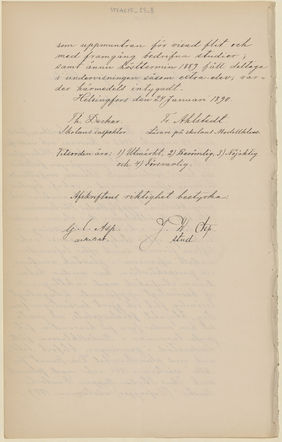 som uppmuntran för visad flit och
med framgång bedrifna studier,
samt ännu hösttermin 1889 fått deltaga
i undervisningen såsom extra elev; var-
der härmedels intygadt.
Helsingfors den 24 Januari 1890.
Th. Decker. F. Ahlstedt.
Skolans inspektor. Läraren på skolans Modellklass.
Vitsorden äro: 1) Utmärkt, 2) Berömlig, 3) Nöjaktig
och 4) Försvarlig.
Afskriftens riktighet bestyrka:
G. A. Asp. J. W. Asp
stud.